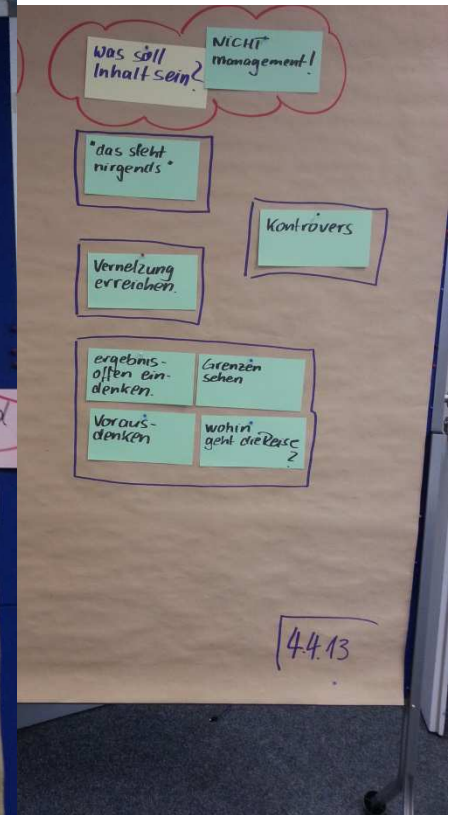 was soll
Inhalt sein?
NICHT
management!
"das steht
nirgends"
Kontrovers
Vernetzung
erreichen.
ergebnis-
offen ein-
denken.
Grenzen
sehen
Voraus-
denken
wohin
geht die Reise
?
4.4.13